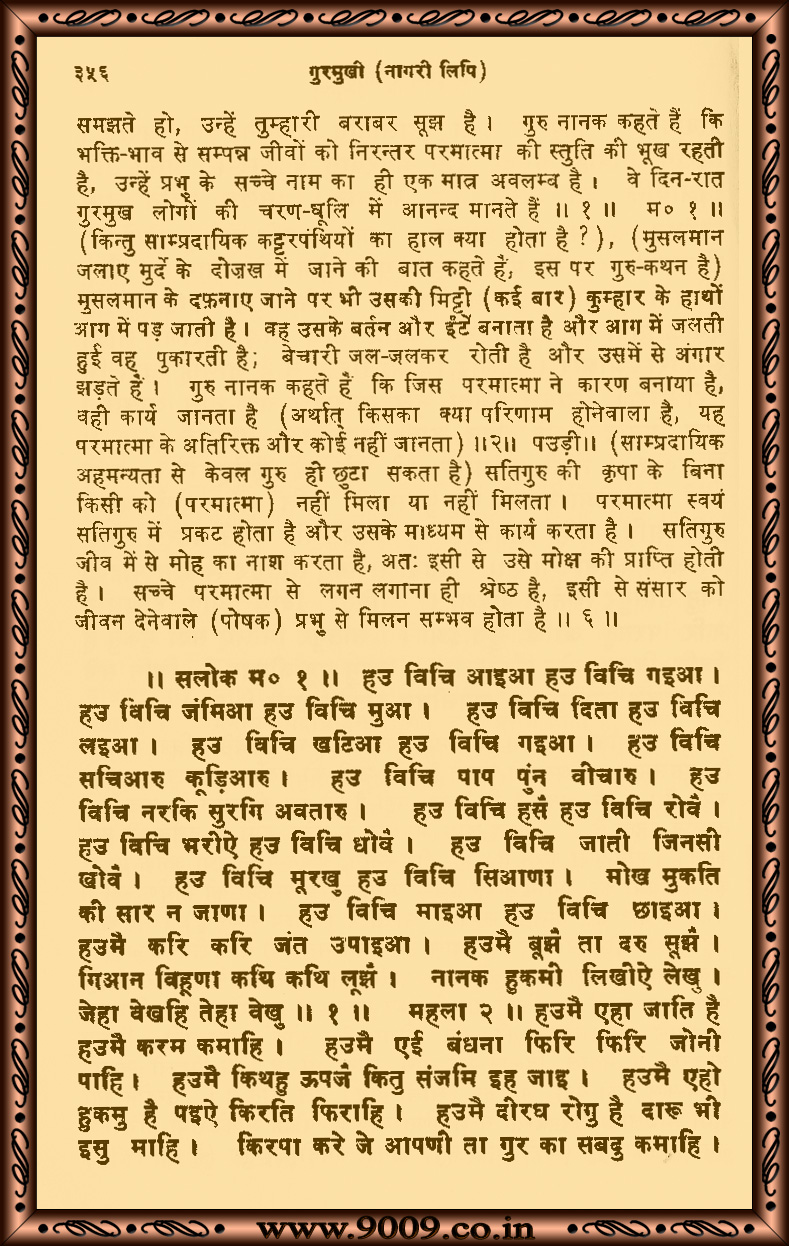 ३५६ गुरमुखी (नागरी लिपि)
समझते हो, उन्हें तुम्हारी बराबर सूझ है। गुरु नानक कहते हैं कि
भक्ति-भाव से सम्पन्न जीवों को निरन्तर परमात्मा की स्तुति की भूख रहती
है, उन्हें प्रभु के सच्चे नाम का ही एक मात्र अवलम्ब है। वे दिन-रात
गुरमुख लोगों की चरण-धूलि में आनन्द मानते हैं ॥ १ ॥ म० १ ॥
(किन्तु साम्प्रदायिक कट्टरपंथियों का हाल क्या होता है ?), (मुसलमान
जलाए मुर्दे के दोज़ख में जाने की बात कहते हैं, इस पर गुरु-कथन है)
मुसलमान के दफ़नाए जाने पर भी उसकी मिट्टी (कई बार) कुम्हार के हाथों
आग में पड़ जाती है। वह उसके बर्तन और ईंटें बनाता है और आग में जलती
हुई वह पुकारती है; बेचारी जल-जलकर रोती है और उसमें से अंगार
झड़ते हैं। गुरु नानक कहते हैं कि जिस परमात्मा ने कारण बनाया है,
वही कार्य जानता है (अर्थात् किसका क्या परिणाम होनेवाला है, यह
परमात्मा के अतिरिक्त और कोई नहीं जानता) ॥२॥ पउड़ी॥ (साम्प्रदायिक
अहमन्यता से केवल गुरु ही छुटा सकता है) सतिगुरु की कृपा के बिना
किसी को (परमात्मा) नहीं मिला या नहीं मिलता। परमात्मा स्वयं
सतिगुरु में प्रकट होता है और उसके माध्यम से कार्य करता है। सतिगुरु
जीव में से मोह का नाश करता है, अतः इसी से उसे मोक्ष की प्राप्ति होती
है। सच्चे परमात्मा से लगन लगाना ही श्रेष्ठ है, इसी से संसार को
जीवन देनेवाले (पोषक) प्रभु से मिलन सम्भव होता है ॥ ६ ॥
॥ सलोक म० १ ॥ हउ विचि आइआ हउ विचि गइआ।
हउ विचि जंमिआ हउ विचि मुआ। हउ विचि दिता हउ विचि
लइआ। हउ विचि खटिआ हउ विचि गइआ। हउ विचि
सचिआरु कूड़िआरु। हउ विचि पाप पुंन वीचारु। हउ
विचि नरकि सुरगि अवतारु। हउ विचि हसै हउ विचि रोवै।
हउ विचि भरीऐ हउ विचि धोवै। हउ विचि जाती जिनसी
खोवै। हउ विचि मूरखु हउ विचि सिआणा। मोख मुकति
की सार न जाणा। हउ विचि माइआ हउ विचि छाइआ।
हउमै करि करि जंत उपाइआ। हउमै बूझै ता दरु सूझै।
गिआन विहूणा कथि कथि लूझै। नानक हुकमी लिखीऐ लेखु।
जेहा वेखहि तेहा वेखु ॥ १ ॥ महला २ ॥ हउमै एहा जाति है
हउमै करम कमाहि। हउमै एई बंधना फिरि फिरि जोनी
पाहि। हउमै किथहु ऊपजै कितु संजमि इह जाइ। हउमै एहो
हुकमु है पइऐ किरति फिराहि। हउमै दीरघ रोगु है दारू भी
इसु माहि। किरपा करे जे आपणी ता गुर का सबदु कमाहि।
www.9009.co.in